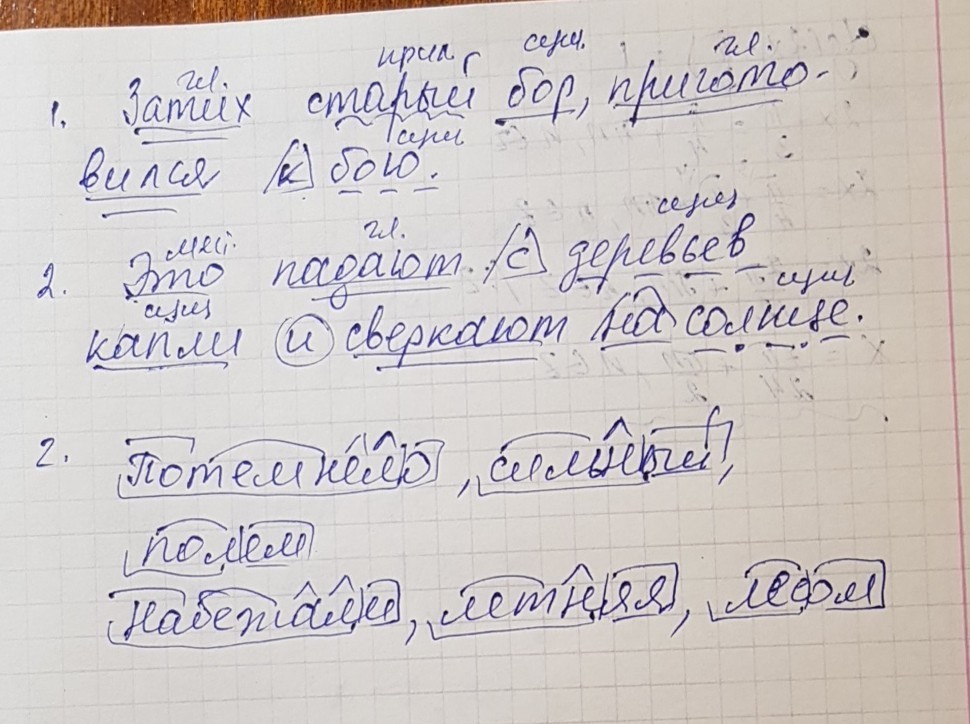 гл. прил. сущ. гл.
1. Затих старый бор, пригото-
сущ
вился к бою.
мест. гл. сущ
2. Это падают с деревьев
сущ сущ
капли и сверкают на солнце.
2. Потемнело, сильный,
полем
набежали, летняя, лесом